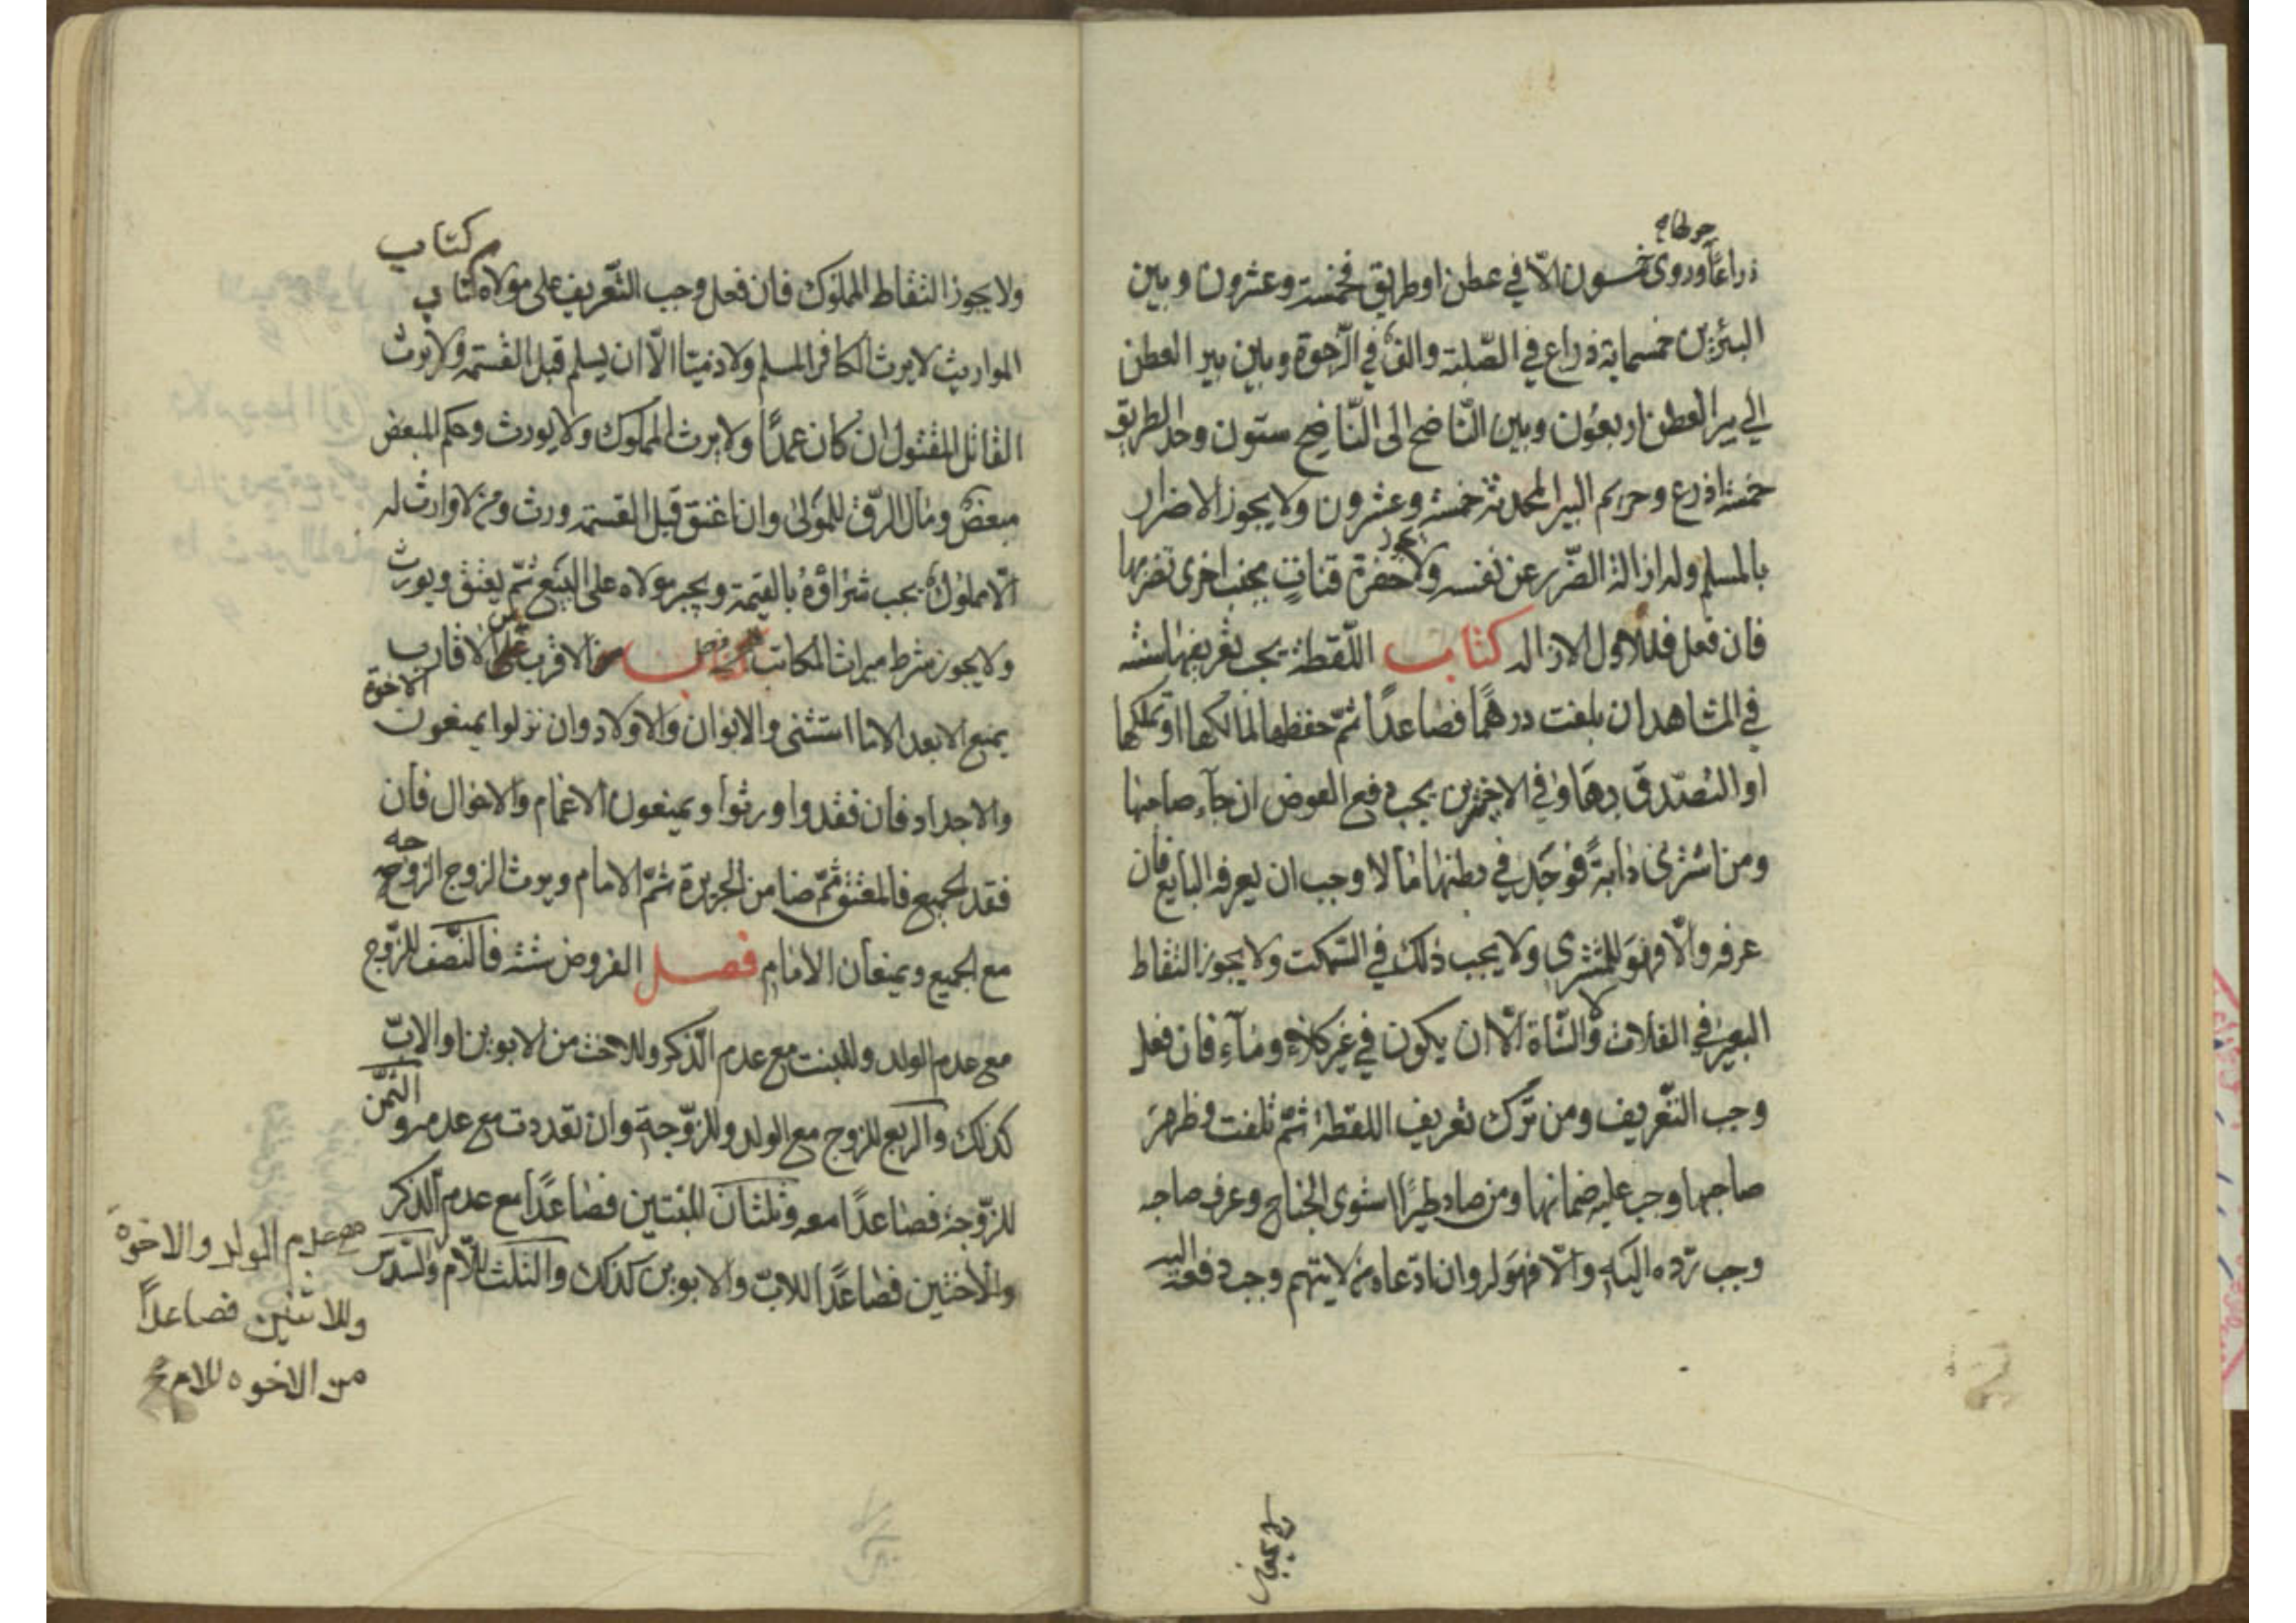 ذراعًا وروى خمسون الّا في عطن او طريق فخمسة وعشرون وبين
البئرين خمسماية ذراع في الصّلبة والف في الرّخوة وبين بير العطن
الي بير العطن اربعون وبين النّاضح الى النّاضح ستون وحد الطريق
خمسة اذرع وحريم البير المحدثة خمسة وعشرون ولا يجوز الاضرار
بالمسلم وله ازالة الضّرر عن نفسه ولا يجوز حفرة قناتٍ بجنب اخرى تضرّ بها
فان فعل فللاول الازاله كتاب اللّقطة يجب تعريفها سنة
في المشاهد ان بلغت درهمًا فصاعدًا ثمّ حفظها لمالكها او تملكها
او التصدّق بها وفي الاخيرين يجب دفع العوض ان جآء صاحبها
ومن اشترى دابةً فوجد في بطنها مالا وجب ان يعرفه البايع فان
عرفه والّا فهو للمشتري ولا يجب ذلك في السّمكت ولا يجوز التقاط
البعير في الفلات ولا الشّاة الّا ان يكون في غير كلاءٍ ومآءٍ فان فعل
وجب التّعريف ومن ترك تعريف اللقطة ثمّ تلفت وظهر
صاحبها وجب عليه ضمانها ومن صاد طيرًا استوى الجناح وعرف صاحبه
وجب ردّه اليه والّا فهو له وان ادّعاه من لا يتهم وجب دفعه اليه
ولا يجوز
كتاب
ولا يجوز التقاط المملوك فان فعل وجب التّعريف على مولاه كتاب
المواريث لا يرث الكافر المسلم ولا ذميّا الّا ان يسلم قبل القسمة ولا يرث
القاتل المقتول ان كان عمدًا ولا يرث المملوك ولا يورث وحكم المبعض
مبعض ومال الرّق للمولى وان اعتق قبل القسمة ورث ومن لا وارث له
الّا مملوك يجب شراؤه بالقيمة ويجبر مولاه على البيع ثمّ يعتق ويورث
ولا يجوز شرط ميراث المكاتب فصل الاقرب من الاقارب
يمنع الابعد الا ما استثنى والابوان والاولاد وان نزلوا يمنعون الاخوة
والاجداد فان فقدوا ورثوا ويمنعون الاعمام والاخوال فان
فقد الجميع فالمعتق ثمّ ضامن الجريرة ثمّ الامام ويرث الزوج الزوجه
مع الجميع ويمنعان الامام فصل الفروض ستة فالنّصف للزّوج
مع عدم الولد وللبنت مع عدم الذّكر وللاخت من الابوين او الابّ
كذلك والربع للزوج مع الولد وللزّوجة وان تعددت مع عدمه والثمّن
للزّوجة فصاعدًا معه وثلثان للبنتين فصاعدًا مع عدم الذكر
والاختين فصاعدًا للابّ والابوين كذلك والثلث للاّم والسّدس
مع عدم الولد والاخوة
وللاثنين فصاعدًا
من الاخوه للام